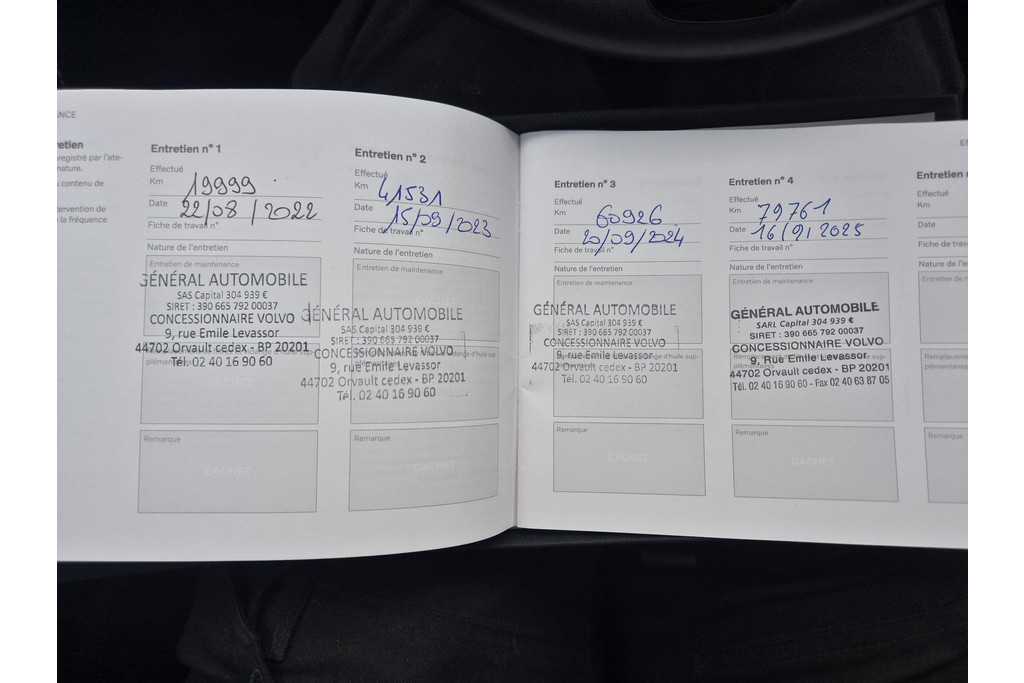 NCE
etien
nregistré par l'ate-
nature.
u contenu de
ntervention de
la fréquence
Entretien n° 1
Effectué
Km 19999
Date 22/08/2022
Fiche de travail n°
Nature de l'entretien
Entretien de maintenance
GÉNÉRAL AUTOMOBILE
SAS Capital 304 939 €
SIRET : 390 665 792 00037
CONCESSIONNAIRE VOLVO
9, rue Emile Levassor
44702 Orvault cedex - BP 20201
Tél. 02 40 16 90 60
CACHET
Remarque
CACHET
Entretien n° 2
Effectué
Km 41531
Date 15/09/2023
Fiche de travail n°
Nature de l'entretien
Entretien de maintenance
CACHET
GÉNÉRAL AUTOMOBILE
SAS Capital 304 939 €
SIRET : 390 665 792 00037
CONCESSIONNAIRE VOLVO
9, rue Emile Levassor
44702 Orvault cedex - BP 20201
Tél. 02 40 16 90 60
Remarque
CACHET
Entretien n° 3
Effectué
Km 60926
Date 20/09/2024
Fiche de travail n°
Nature de l'entretien
Entretien de maintenance
GÉNÉRAL AUTOMOBILE
SAS Capital 304 939 €
SIRET : 390 665 792 00037
CONCESSIONNAIRE VOLVO
9, rue Emile Levassor
44702 Orvault cedex - BP 20201
Tél. 02 40 16 90 60
Remarque
CACHET
Entretien n° 4
Effectué
Km 79761
Date 16/9/2025
Fiche de travail n°
Nature de l'entretien
Entretien de maintenance
GÉNÉRAL AUTOMOBILE
SARL Capital 304 939 €
SIRET : 390 665 792 00037
CONCESSIONNAIRE VOLVO
9, Rue Emile Levassor
44702 Orvault cedex - BP 20201
Tél. 02 40 16 90 60 - Fax 02 40 63 87 05
Remarque
CACHET
Entretien n
Effectué
Km
Date
Fiche de trava
Nature de l'en
Entretien de m
Remplacemen
plémentaires
Remarque